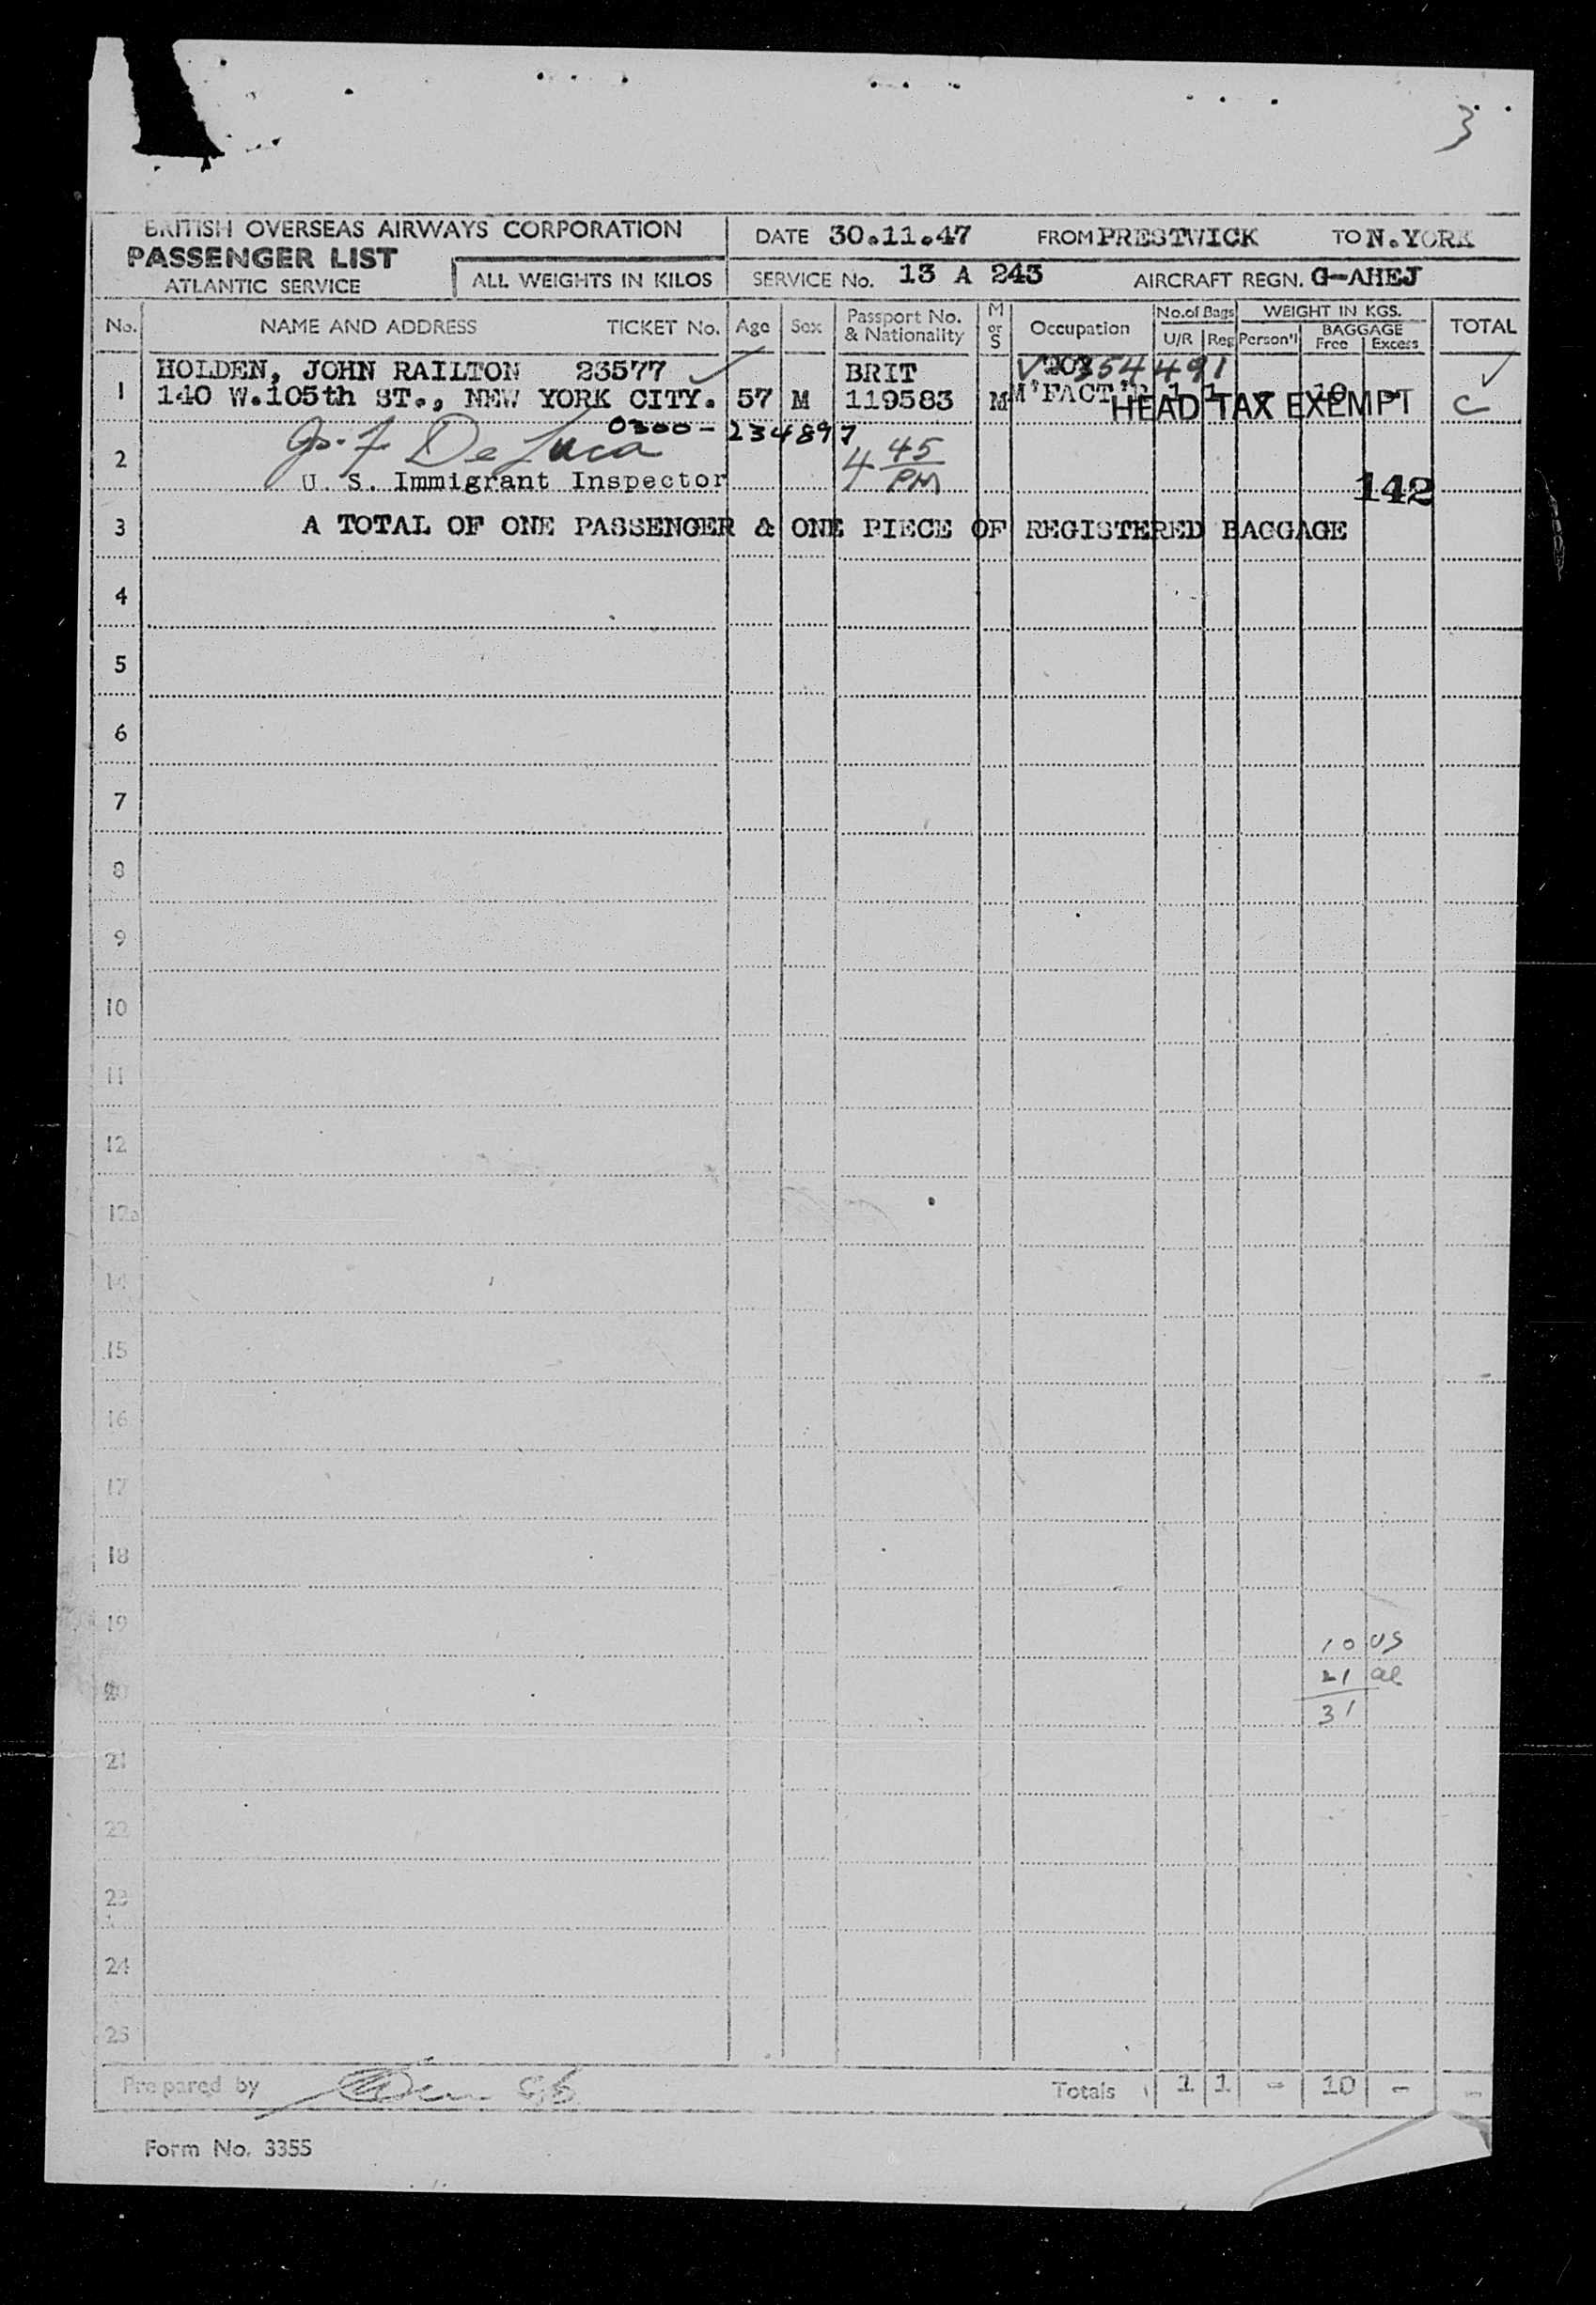 3
BRITISH OVERSEAS AIRWAYS CORPORATION
PASSENGER LIST
ATLANTIC SERVICE
ALL WEIGHTS IN KILOS
DATE 30.11.47 FROM PRESTWICK TO N.YORK
SERVICE No. 13 A 243 AIRCRAFT REGN. G-AHEJ
No. NAME AND ADDRESS TICKET No. Age Sex Passport No. & Nationality M or S Occupation No. of Bags U/R Reg WEIGHT IN KGS. Person'l BAGGAGE Free Excess TOTAL
HOLDEN, JOHN RAILTON 23577 BRIT V 354491
1 140 W.105th ST., NEW YORK CITY. 57 M 119583 M M'FACT'R 1 1 - 10 - C
HEAD TAX EXEMPT
0300-234897
2 Jo. F De Luca 4 45 PM
U. S. Immigrant Inspector 142
3 A TOTAL OF ONE PASSENGER & ONE PIECE OF REGISTERED BAGGAGE
4
5
6
7
8
9
10
11
12
12a
14
15
16
17
18
19
10 US
20 21 al
31
21
22
23
24
25
Prepared by Totals 1 1 - 10 - -
Form No. 3355